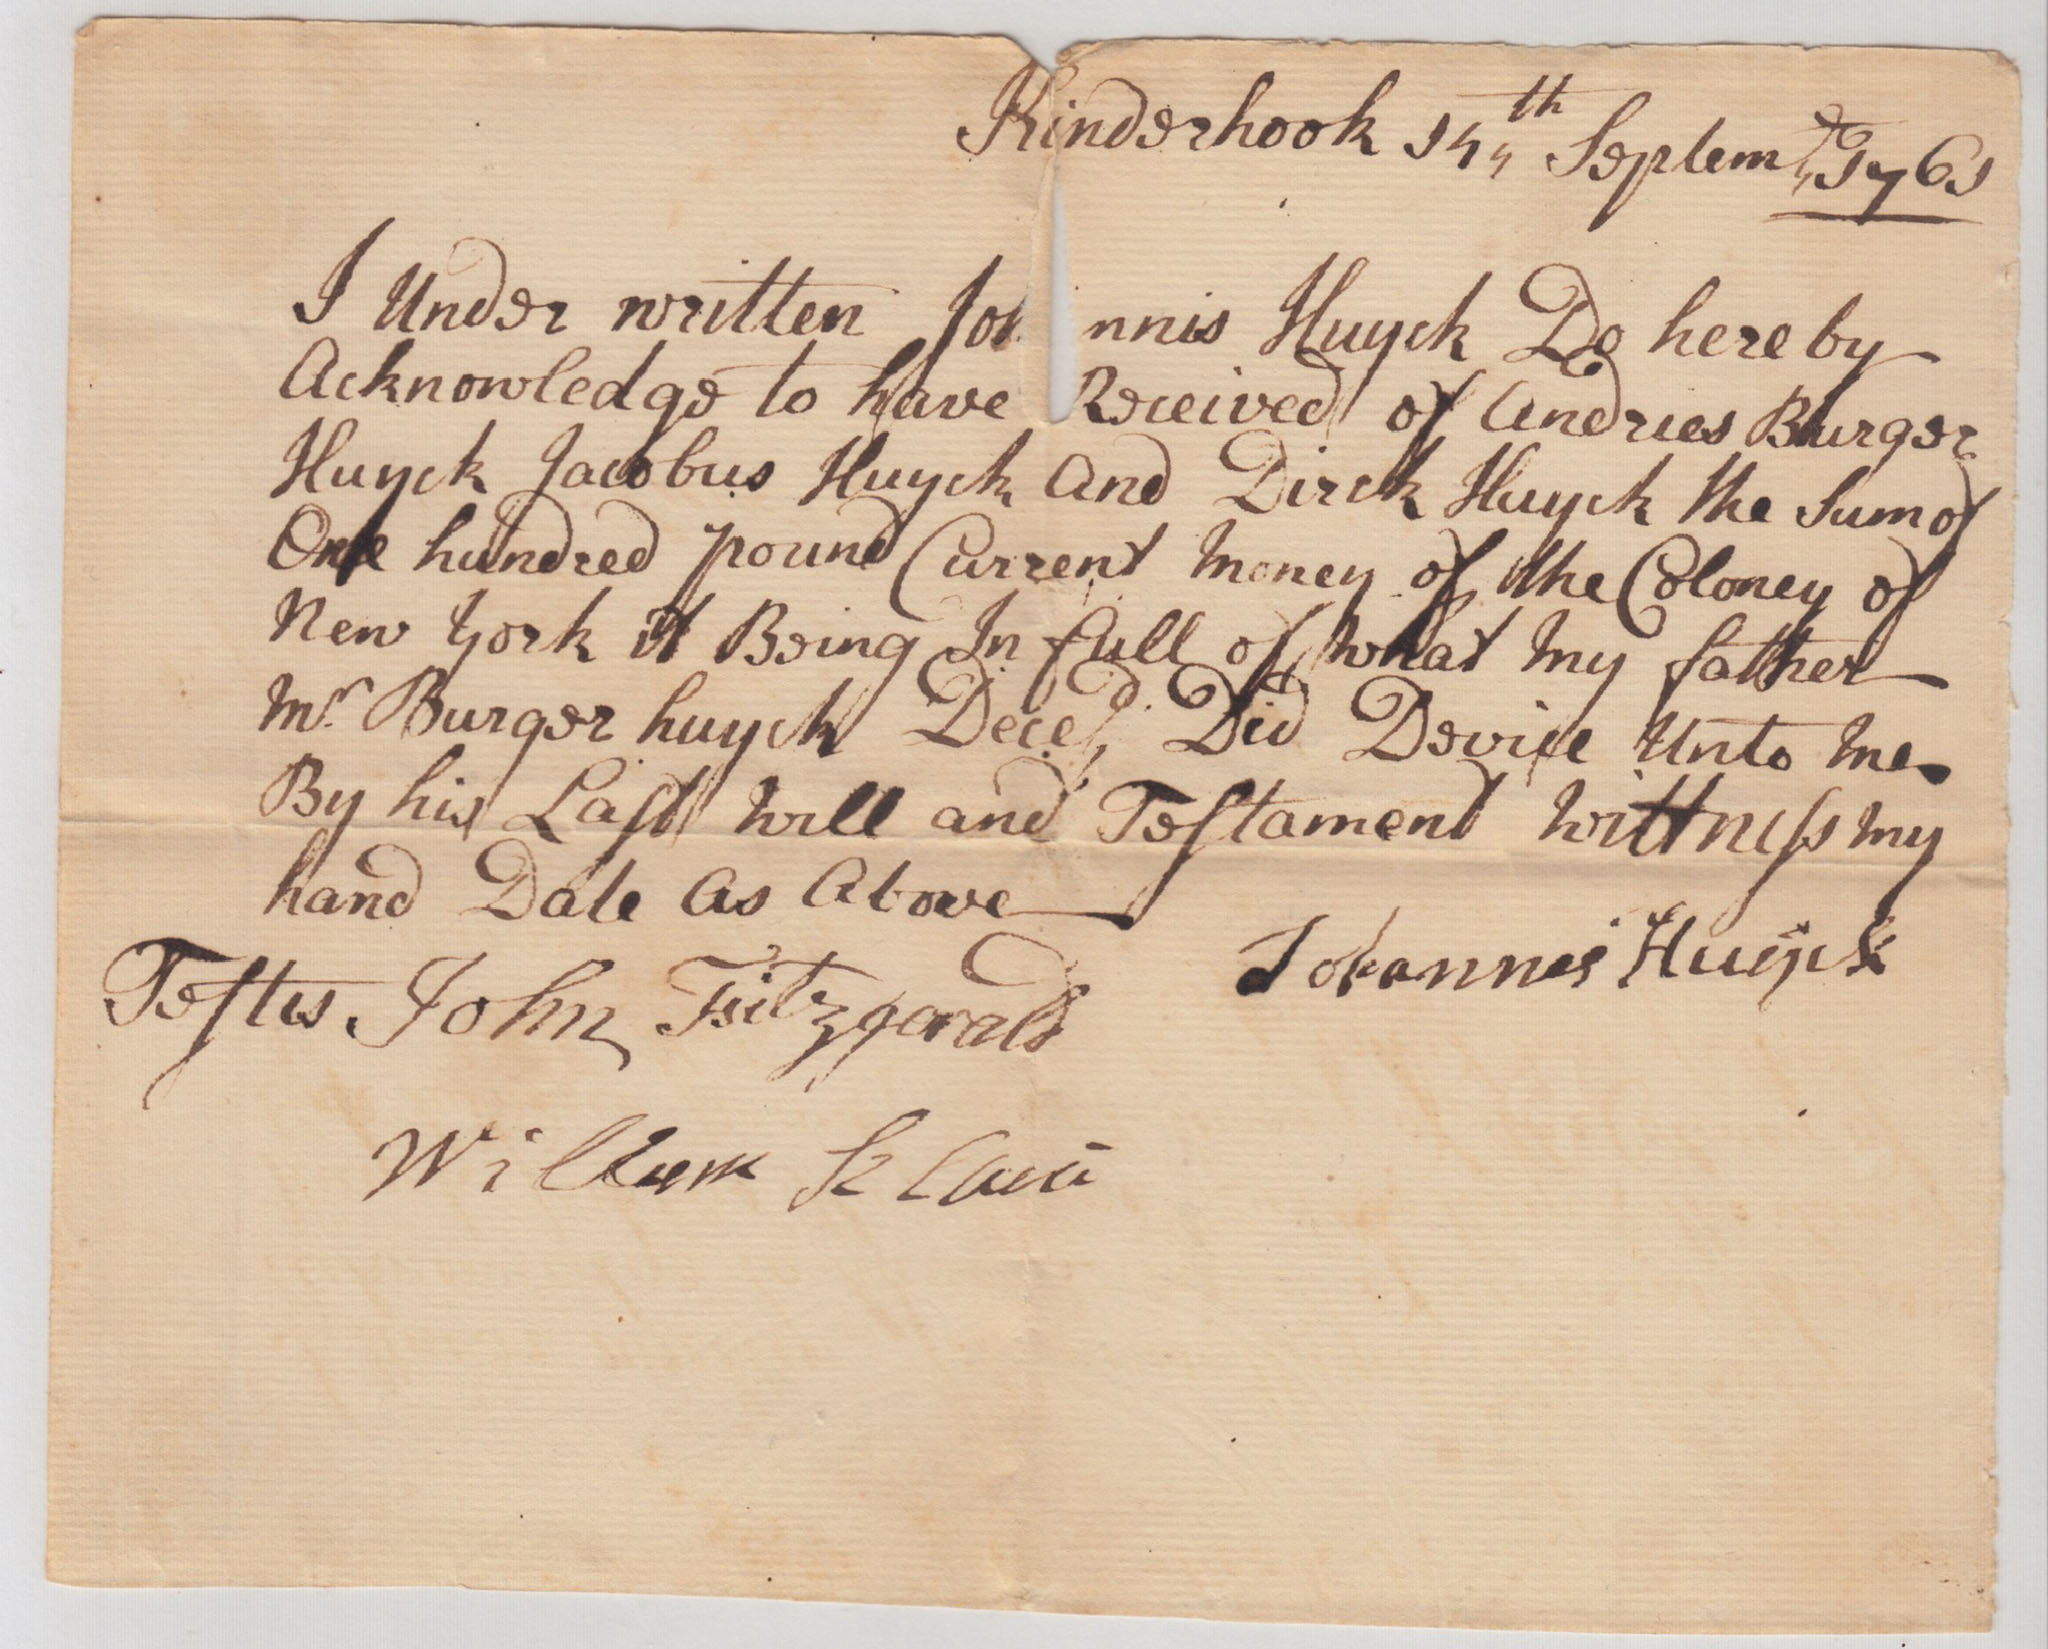 Kinderhook 14th Septemr 1761
I Under written Joh nnis Huyck Do hereby
Acknowledge to have Received of Andries Burger
Huyck Jacobus Huyck and Dirck Huyck the Sum of
One hundred pound Current Money of the Coloney of
New York it Being In full of what my father
Mr Burger huyck Deced Did Devise Unto me
By his Last Will and Testament Wittness my
hand Date as Above
Johannes Huyck
Testis John Fitzgerald
Willem Klauw